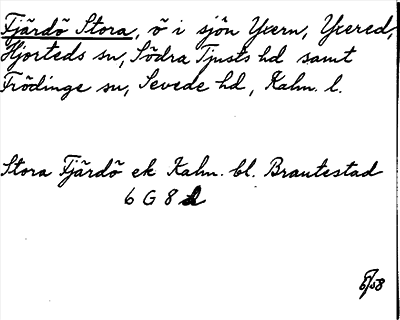 Fjärdö Stora, ö i sjön Yxern, Yxered,
Hjorteds sn, Södra Tjusts hd samt
Frödinge sn, Sevede hd, Kalm. l.
Stora Fjärdö ek Kalm. bl. Brantestad
6 G 8